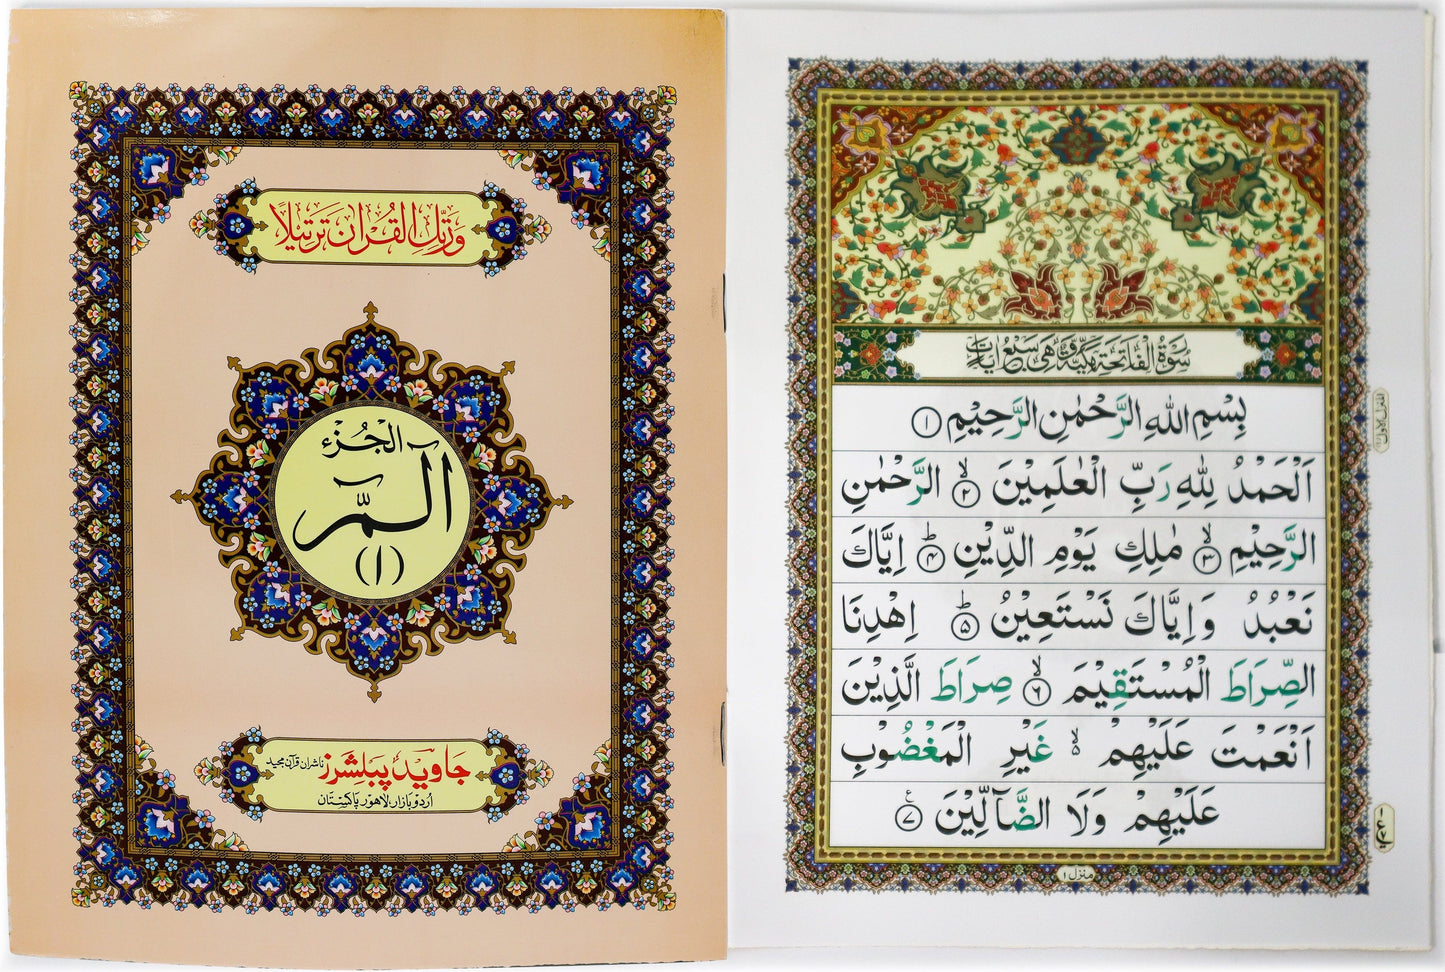 وَرَتِّلِ الْقُرْاٰنَ تَرْتِيْلًا
الْجُزْءُ
الٓمّٓ
(۱)
جاوید پبلشرز ناشران قرآن مجید
اُردو بازار، لاہور پاکستان
سُوْرَةُ الْفَاتِحَةِ مَكِّيَّةٌ وَّهِيَ سَبْعُ اٰيَاتٍ
بِسْمِ اللّٰهِ الرَّحْمٰنِ الرَّحِيْمِ ۱
اَلْحَمْدُ لِلّٰهِ رَبِّ الْعٰلَمِيْنَ ۙ ۲ الرَّحْمٰنِ
الرَّحِيْمِ ۙ ۳ مٰلِكِ يَوْمِ الدِّيْنِ ؕ ۴ اِيَّاكَ
نَعْبُدُ وَاِيَّاكَ نَسْتَعِيْنُ ؕ ۵ اِهْدِنَا
الصِّرَاطَ الْمُسْتَقِيْمَ ۙ ۶ صِرَاطَ الَّذِيْنَ
اَنْعَمْتَ عَلَيْهِمْ ۙ۵ غَيْرِ الْمَغْضُوْبِ
عَلَيْهِمْ وَلَا الضَّآلِّيْنَ ۷ ع
منزل ۱
المنزل الاول